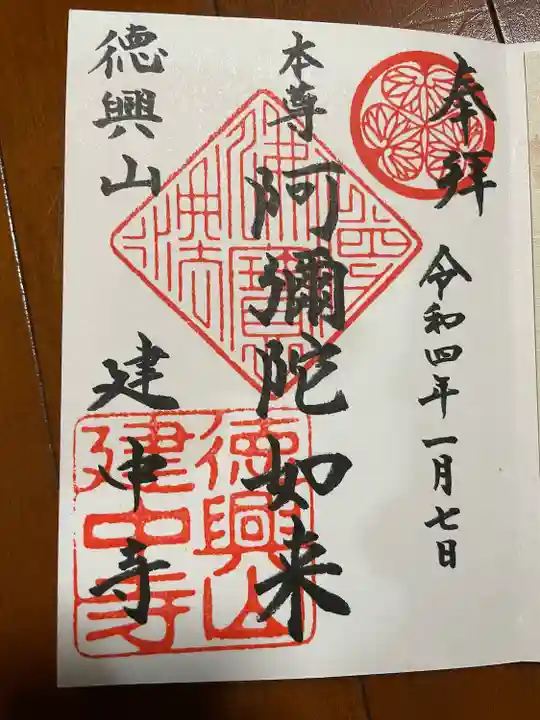 奉拝
令和四年一月七日
本尊
阿彌陀如来
徳興山
建中寺
徳興山
建中寺